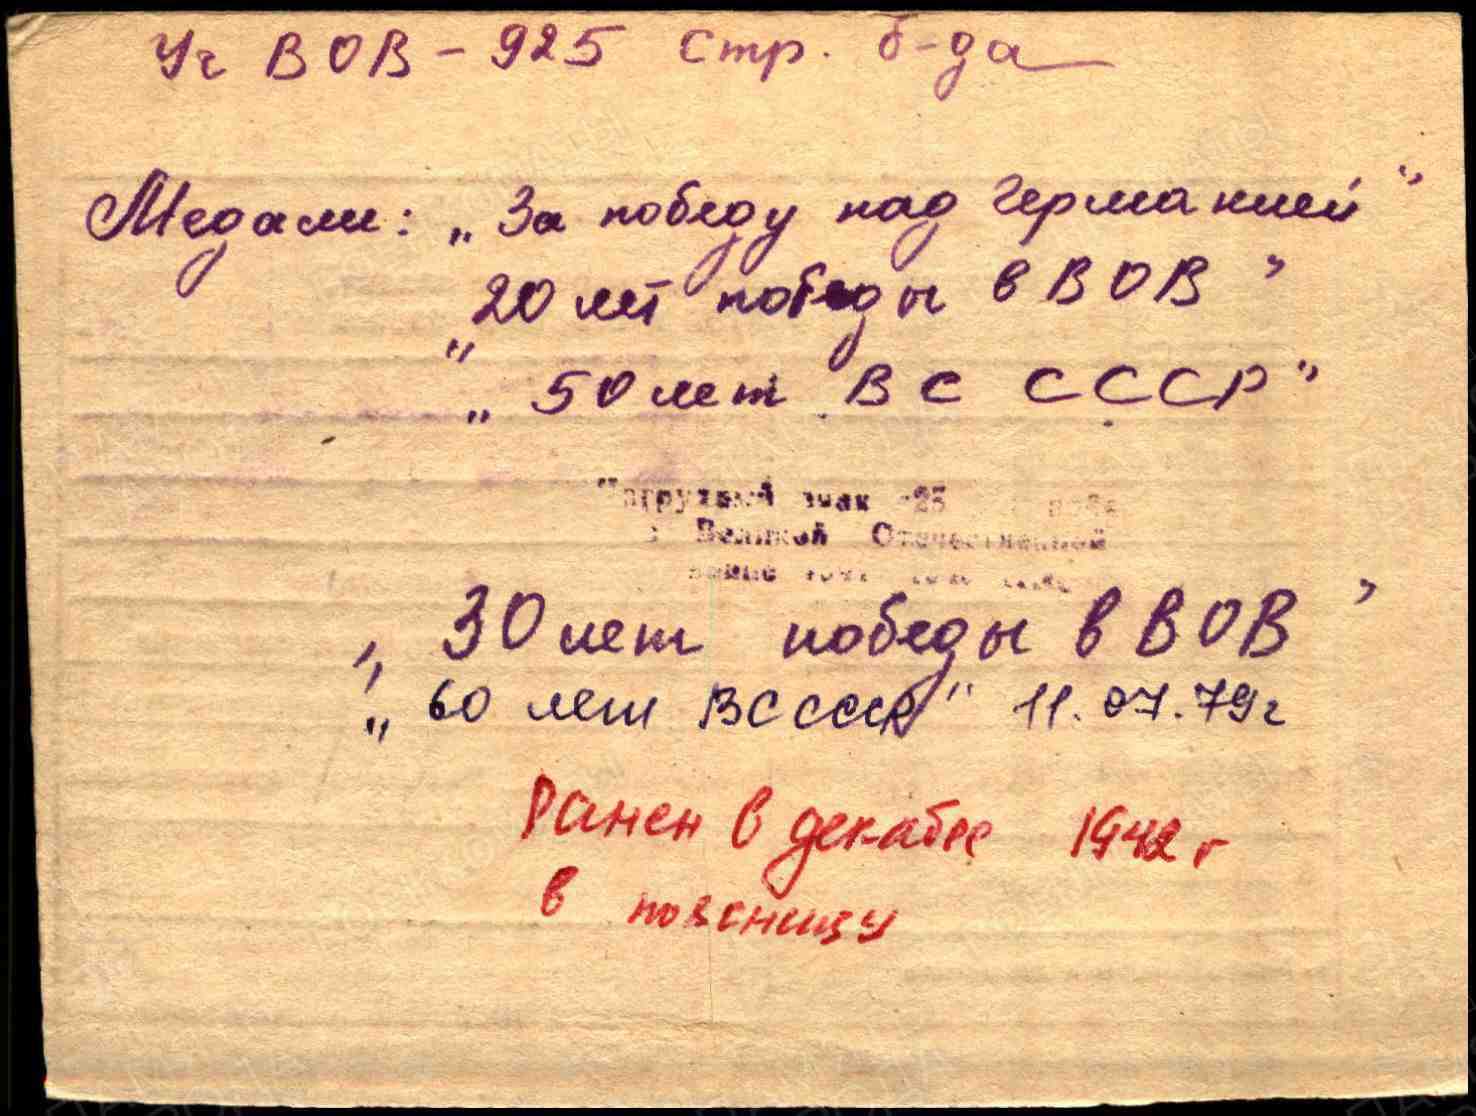 Уч ВОВ - 925 стр. б-да
Медали: „За победу над Германией"
„20 лет победы в ВОВ"
„50 лет ВС СССР"
Нагрудный знак 25
в Великой Отечественной
войне
„30 лет победы в ВОВ"
„60 лет ВС СССР" 11.07.79 г
Ранен в декабре 1942 г
в поясницу